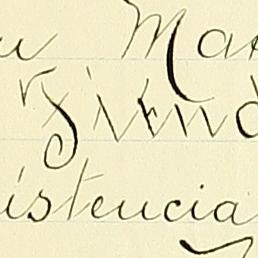 u Ma
Siend
istencia